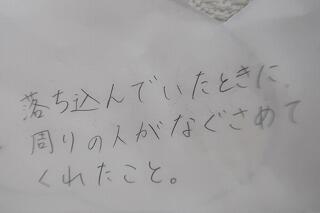 落ち込んでいたときに、
周りの人がなぐさめて
くれたこと。